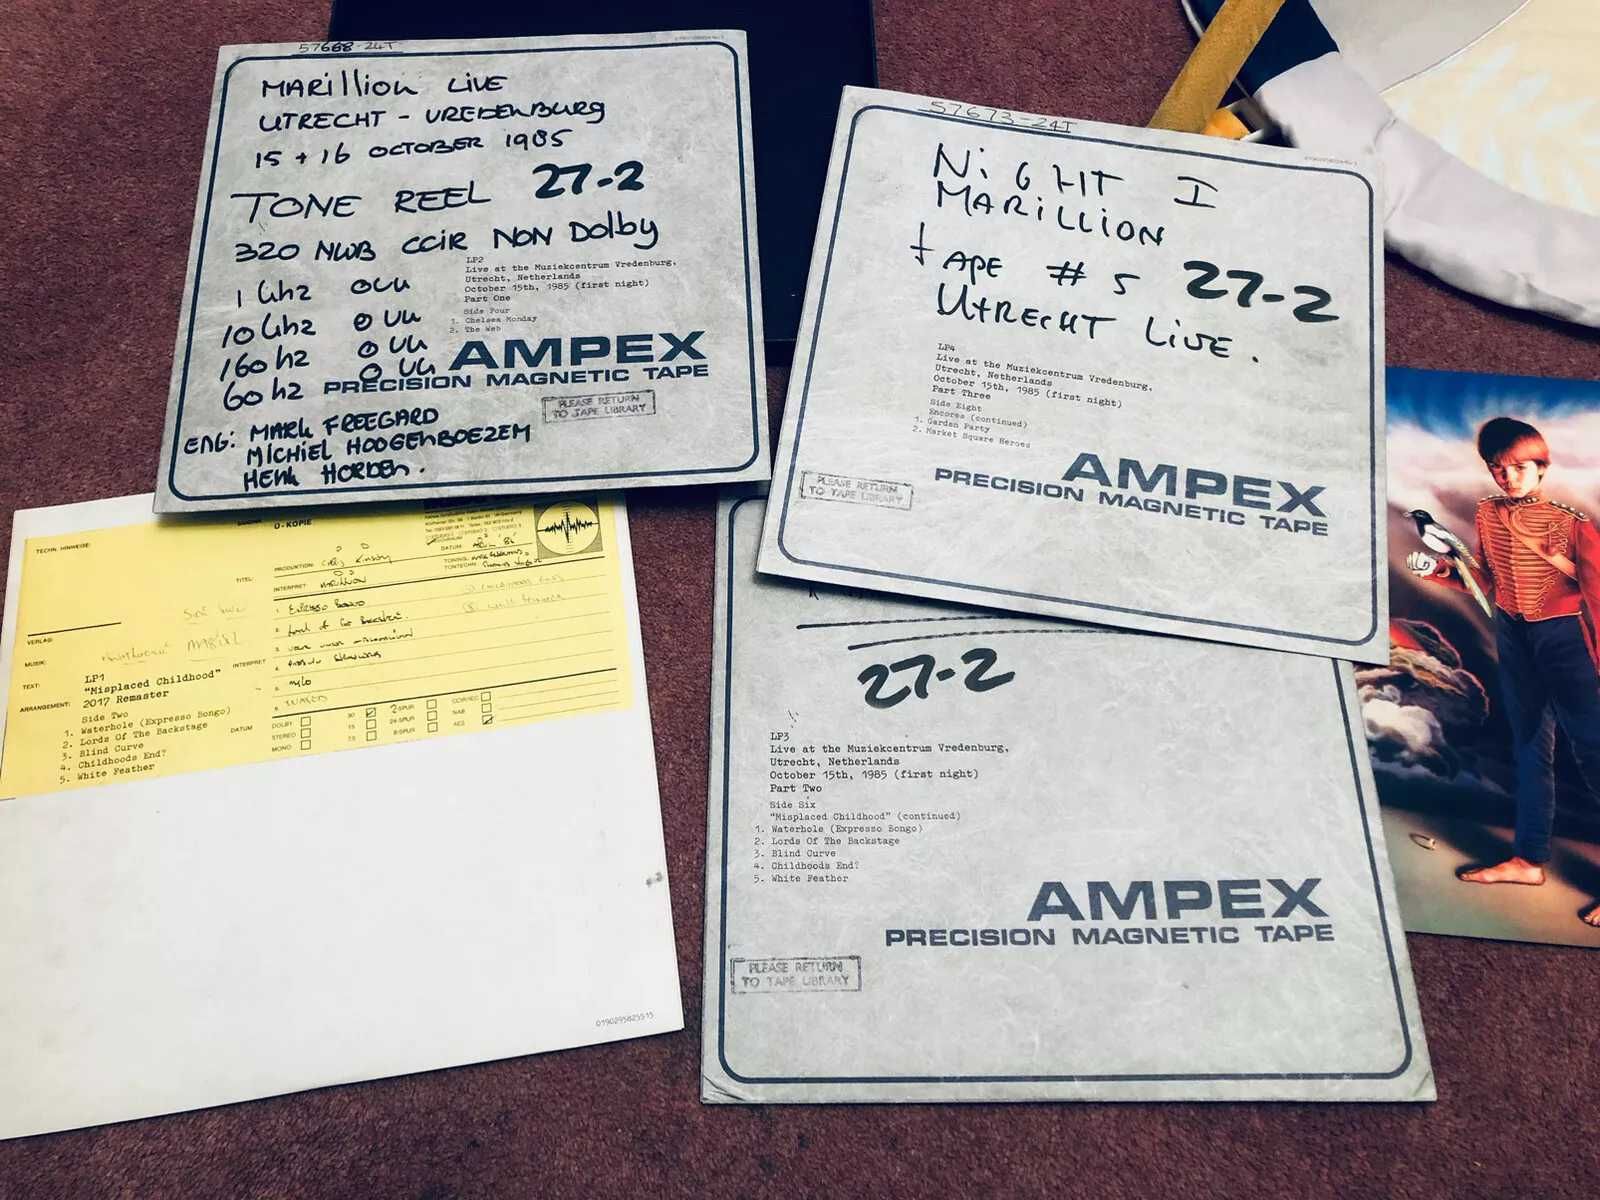 57668-24T
MARillion LiVE
UTRECHT - VREDENBURG
15 + 16 OCTOBER 1985
TONE REEL 27-2
320 NWB CCIR NON Dolby
1 Ghz OUU
10 Ghz O UU
160 hz O UU
60 hz O UU
LP2
Live at the Muziekcentrum Vredenburg,
Utrecht, Netherlands
October 15th, 1985 (first night)
Part One
Side Four
1. Chelsea Monday
2. The Web
AMPEX
PRECISION MAGNETIC TAPE
PLEASE RETURN
TO TAPE LIBRARY
ENG: MARK FREEGARD
MICHIEL HOOGENBOEZEM
HENK HORDEN.
57673-24T
NiGHT I
MARILLION
tAPE # 5 27-2
UTRECHT LIVE.
LP4
Live at the Muziekcentrum Vredenburg,
Utrecht, Netherlands
October 15th, 1985 (first night)
Part Three
Side Eight
Encores (continued)
1. Garden Party
2. Market Square Heroes
AMPEX
PRECISION MAGNETIC TAPE
PLEASE RETURN
TO TAPE LIBRARY
D-KOPIE
TECHN. HINWEISE:
TITEL:
PRODUKTION:
DATUM:
INTERPRET MARILLION
VERLAG:
MUSIK:
INTERPRET
TEXT:
ARRANGEMENT:
LP1
"Misplaced Childhood"
2017 Remaster
Side Two
1. Waterhole (Expresso Bongo)
2. Lords Of The Backstage
3. Blind Curve
4. Childhoods End?
5. White Feather
DATUM
DOLBY
STEREO
MONO
0190295825515
27-2
LP3
Live at the Muziekcentrum Vredenburg,
Utrecht, Netherlands
October 15th, 1985 (first night)
Part Two
Side Six
"Misplaced Childhood" (continued)
1. Waterhole (Expresso Bongo)
2. Lords Of The Backstage
3. Blind Curve
4. Childhoods End?
5. White Feather
AMPEX
PRECISION MAGNETIC TAPE
PLEASE RETURN
TO TAPE LIBRARY